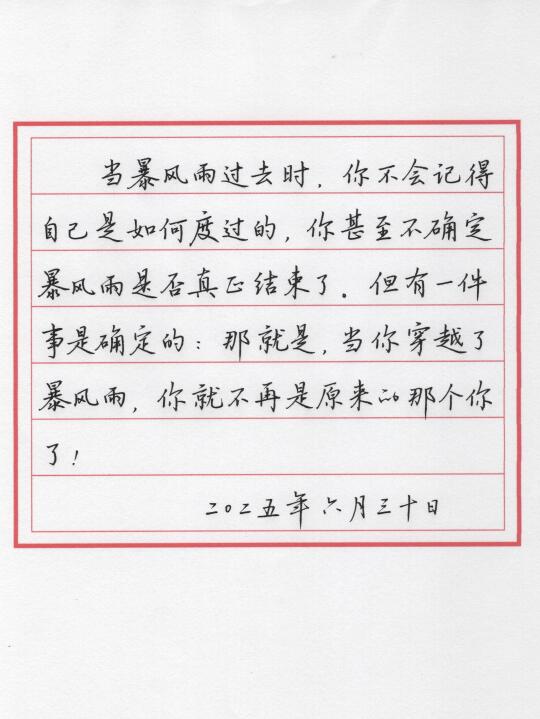 当暴风雨过去时，你不会记得
自己是如何度过的，你甚至不确定
暴风雨是否真正结束了。但有一件
事是确定的：那就是，当你穿越了
暴风雨，你就不再是原来的那个你
了！
二〇二五年六月三十日